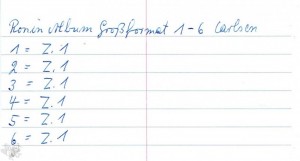 Ronin Album Großformat 1-6 Carlsen
1 = Z.1
2 = Z.1
3 = Z.1
4 = Z.1
5 = Z.1
6 = Z.1